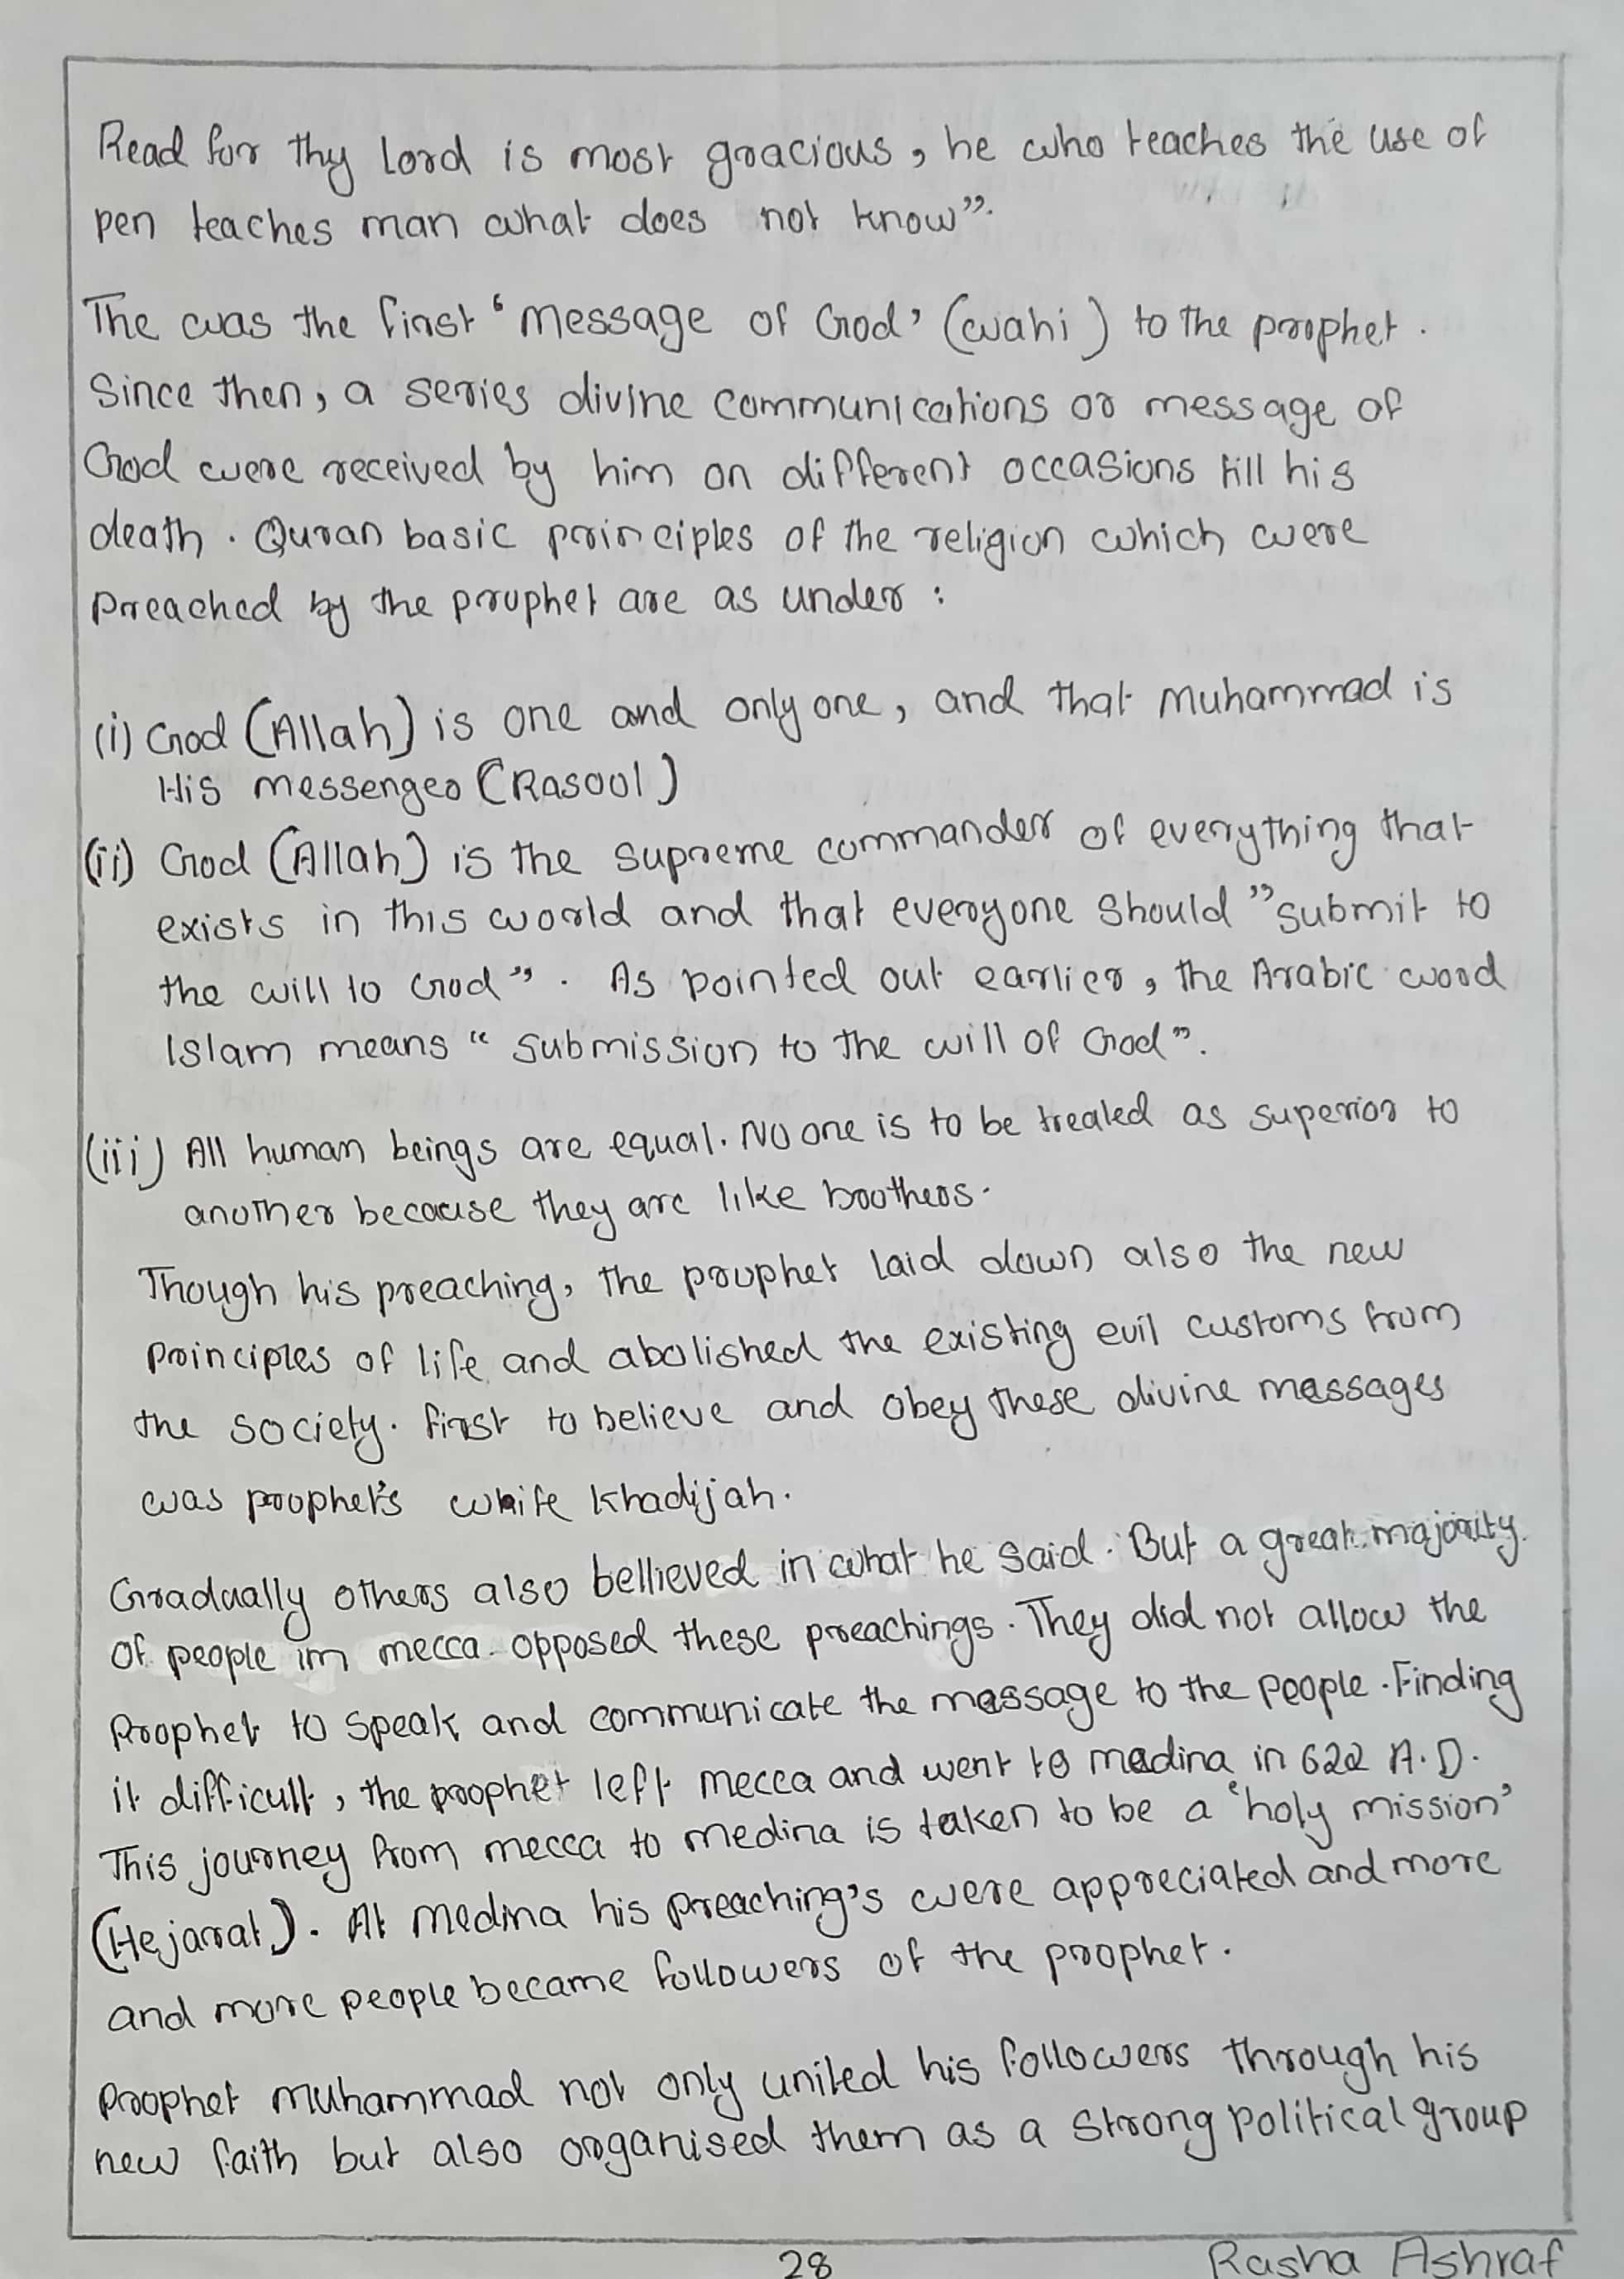 Read for thy Lord is most gracious, he who teaches the use of
pen teaches man what does not know".
The was the first 'message of God' (wahi) to the prophet.
Since then, a series divine communications or message of
God were received by him on different occasions till his
death. Quran basic principles of the religion which were
preached by the prophet are as under:
(i) God (Allah) is one and only one, and that Muhammad is
His messenger (Rasool)
(ii) God (Allah) is the supreme commander of everything that
exists in this world and that everyone should "submit to
the will to God". As pointed out earlier, the Arabic word
Islam means "submission to the will of God".
(iii) All human beings are equal. No one is to be treated as superior to
another because they are like brothers.
Though his preaching, the prophet laid down also the new
principles of life and abolished the existing evil customs from
the society. first to believe and obey these divine messages
was prophet's whife Khadijah.
Gradually others also bellieved in what he said. But a great majority
of people im mecca opposed these preachings. They did not allow the
Prophet to speak and communicate the message to the people. Finding
it difficult, the prophet left mecca and went to madina in 622 A.D.
This journey from mecca to medina is taken to be a 'holy mission'
(Hejarat). At medina his preaching's were appreciated and more
and more people became followers of the prophet.
Prophet muhammad not only united his followers through his
new faith but also organised them as a strong political group
28
Rasha Ashraf